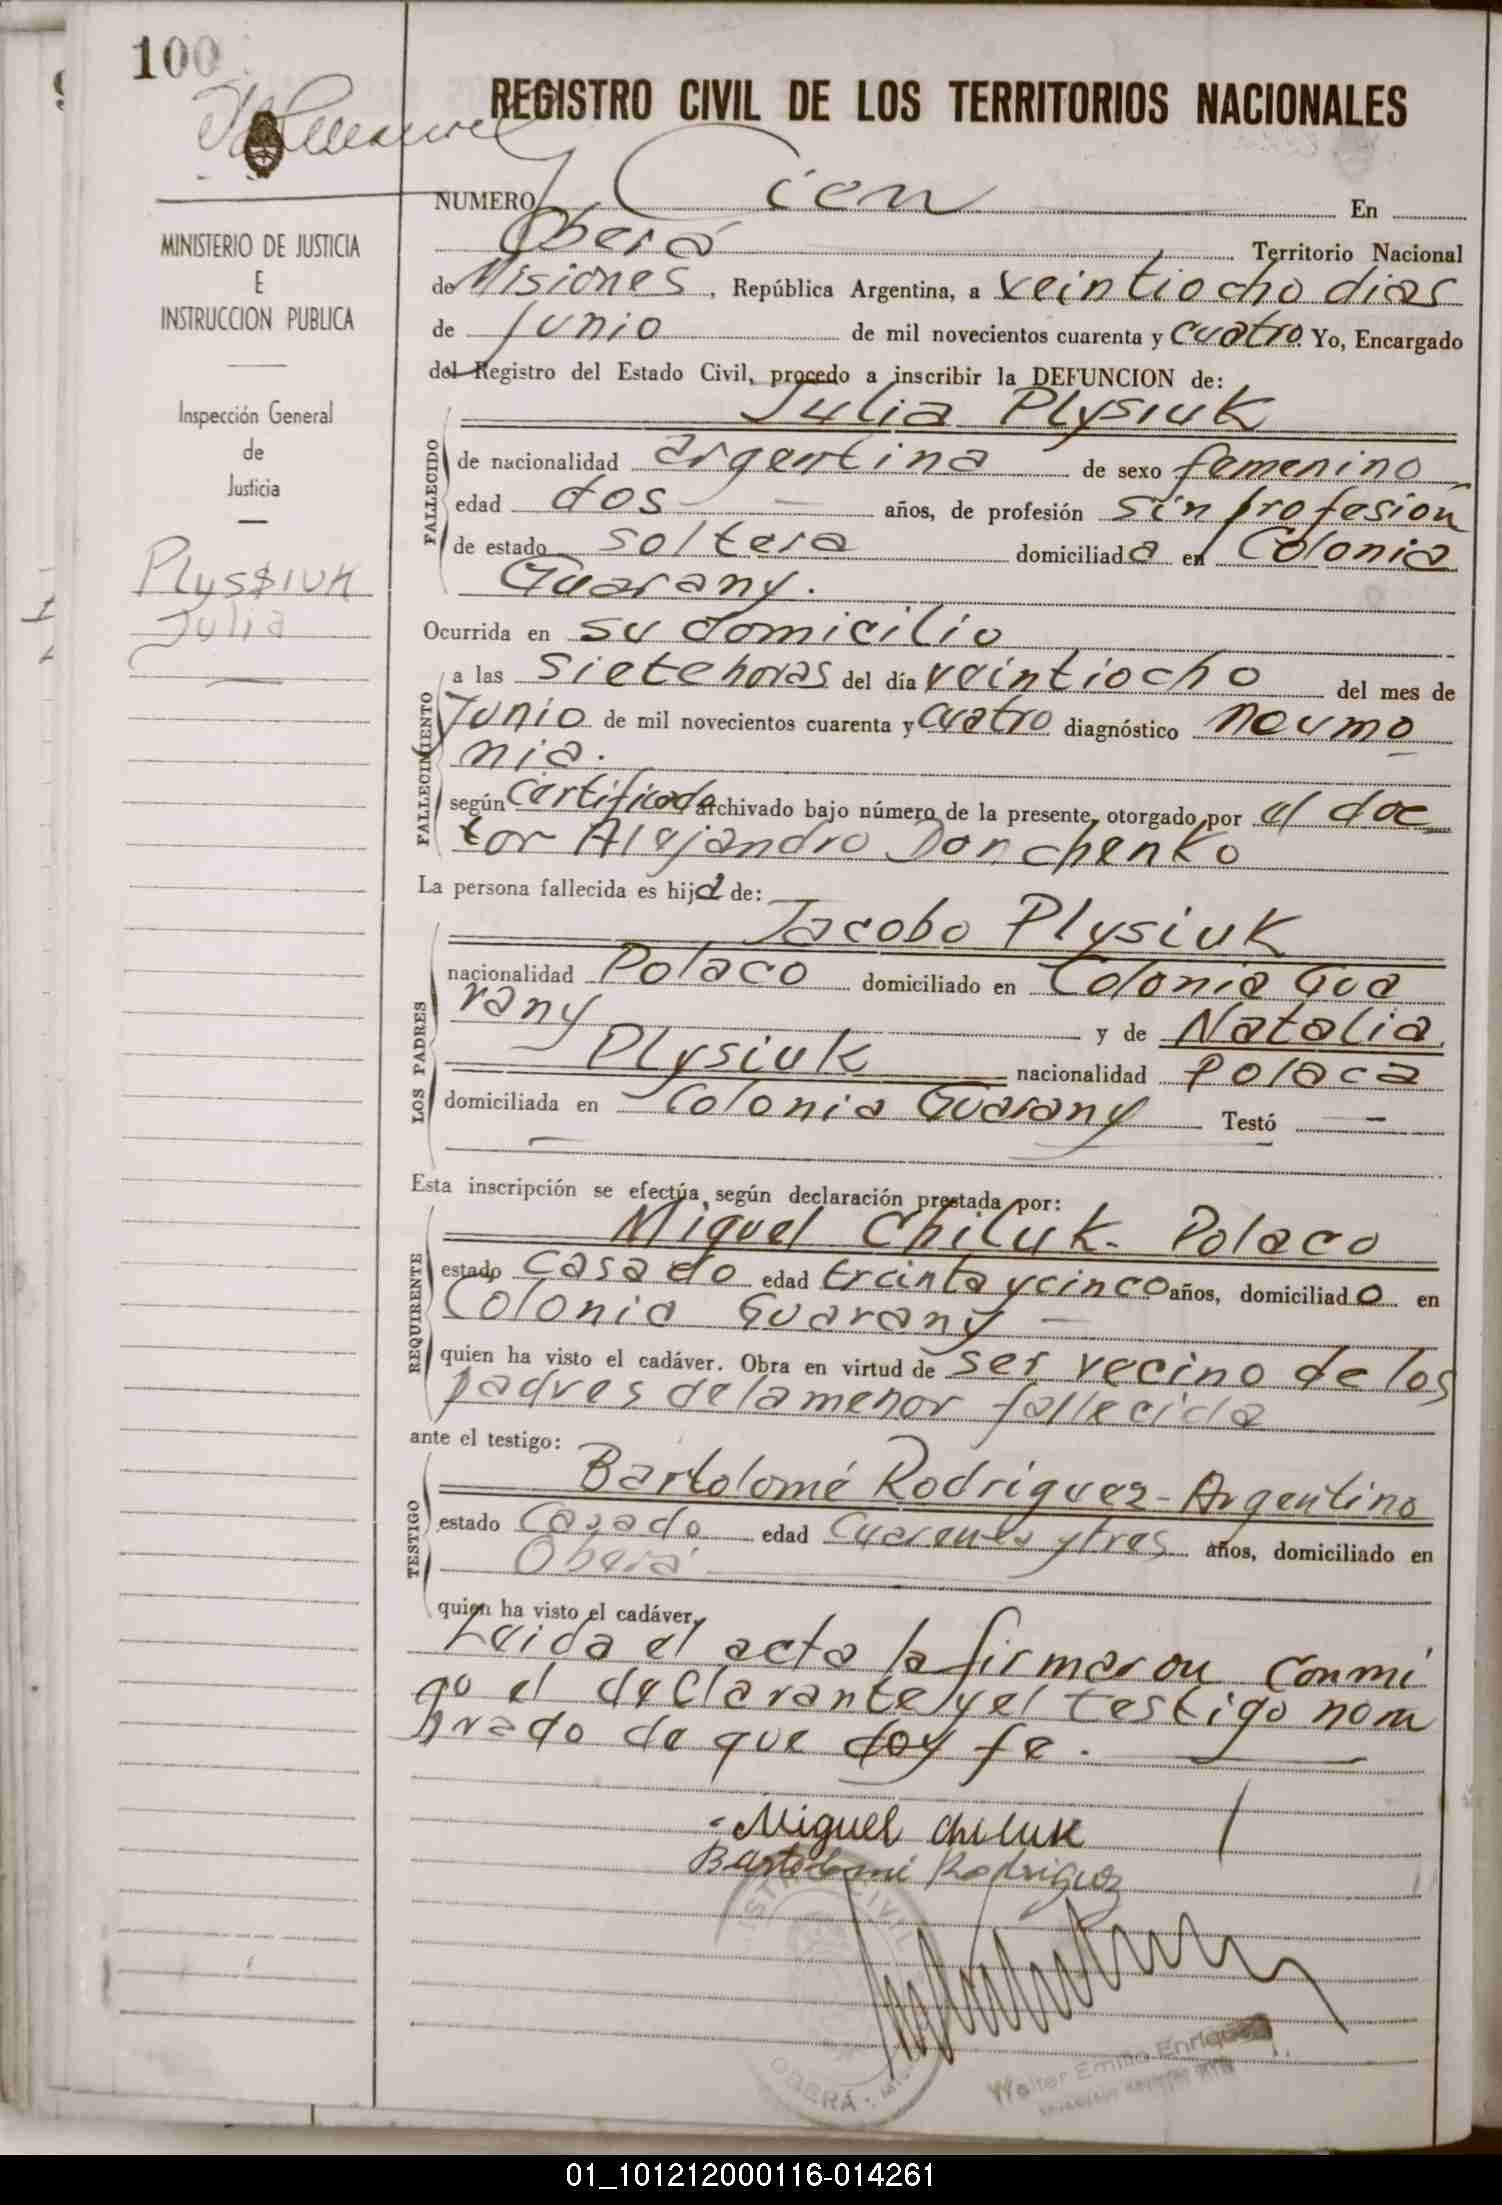 100
REGISTRO CIVIL DE LOS TERRITORIOS NACIONALES
MINISTERIO DE JUSTICIA
E
INSTRUCCION PUBLICA
Inspección General
de
Justicia
Plyssiuk
Julia
NUMERO Cien En
Oberá Territorio Nacional
de Misiones, República Argentina, a veintiocho dias
de Junio de mil novecientos cuarenta y cuatro Yo, Encargado
del Registro del Estado Civil, procedo a inscribir la DEFUNCION de:
Julia Plysiuk
FALLECIDO
de nacionalidad argentina de sexo femenino
edad dos años, de profesión sin profesión
de estado soltera domiciliada en Colonia
Guarany.
Ocurrida en su domicilio
FALLECIMIENTO
a las siete horas del día veintiocho del mes de
Junio de mil novecientos cuarenta y cuatro diagnóstico neumo
nia.
según Certificado archivado bajo número de la presente, otorgado por el doc
tor Alejandro Donchenko
La persona fallecida es hija de:
LOS PADRES
Jacobo Plysiuk
nacionalidad Polaco domiciliado en Colonia Gua
rany y de Natalia
Plysiuk nacionalidad Polaca
domiciliada en Colonia Guarany Testó —
Esta inscripción se efectúa según declaración prestada por:
REQUIRENTE
Miguel Chiluk - Polaco
estado casado edad treinta y cinco años, domiciliado en
Colonia Guarany —
quien ha visto el cadáver. Obra en virtud de ser vecino de los
padres de la menor fallecida
ante el testigo:
TESTIGO
Bartolomé Rodriguez - Argentino
estado Casado edad Cuarenta y tres años, domiciliado en
Oberá
quien ha visto el cadáver.
Leida el acta la firmaron conmi
go el declarante y el testigo nom
brado de que doy fe.
Miguel chiluk
Bartolomé Rodriguez
CIVIL
OBERÁ
Walter Emilio Enrique
01_101212000116-014261